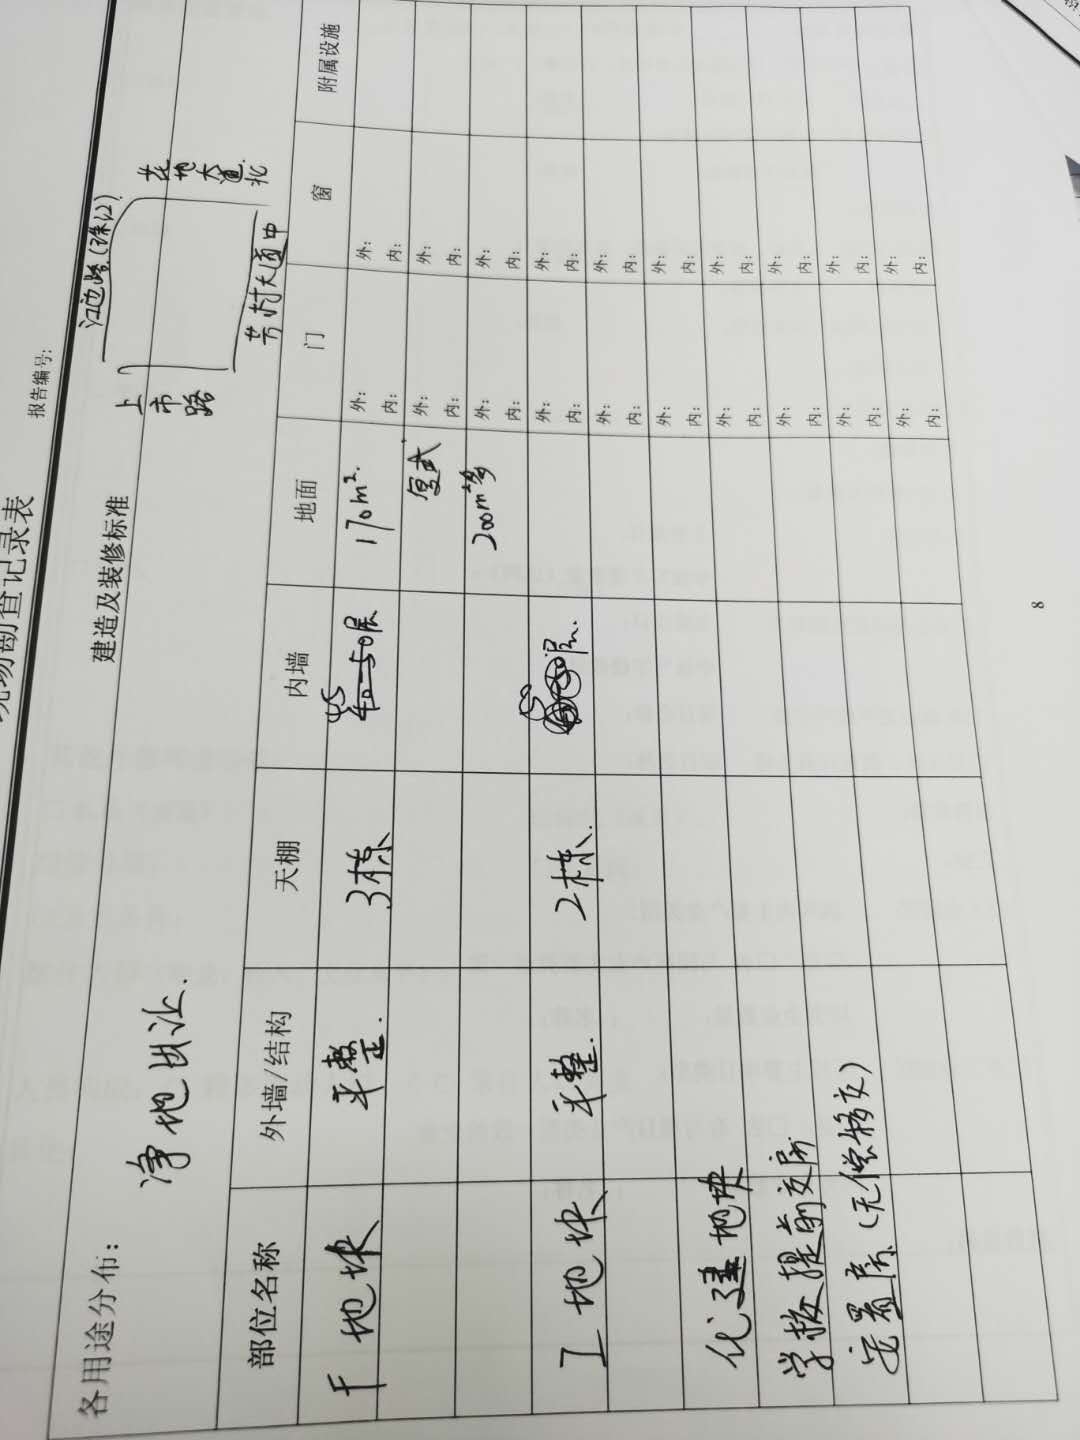 现场勘查记录表
报告编号:
建造及装修标准
江边路(珠江)
花地大道北
上市路
芳村大道中
各用途分布:
净地出让.
部位名称 外墙/结构 天棚 内墙 地面 门 窗 附属设施
F地块 平整. 3栋 45 50层 170m². 外: 内: 外: 内:
复式 外: 内: 外: 内:
200m²多 外: 内: 外: 内:
I地块 平整. 2栋. 层. 外: 内: 外: 内:
外: 内: 外: 内:
化建地块 外: 内: 外: 内:
学校提前交房 外: 内: 外: 内:
安置房(无偿移交) 外: 内: 外: 内:
外: 内: 外: 内:
外: 内: 外: 内:
8